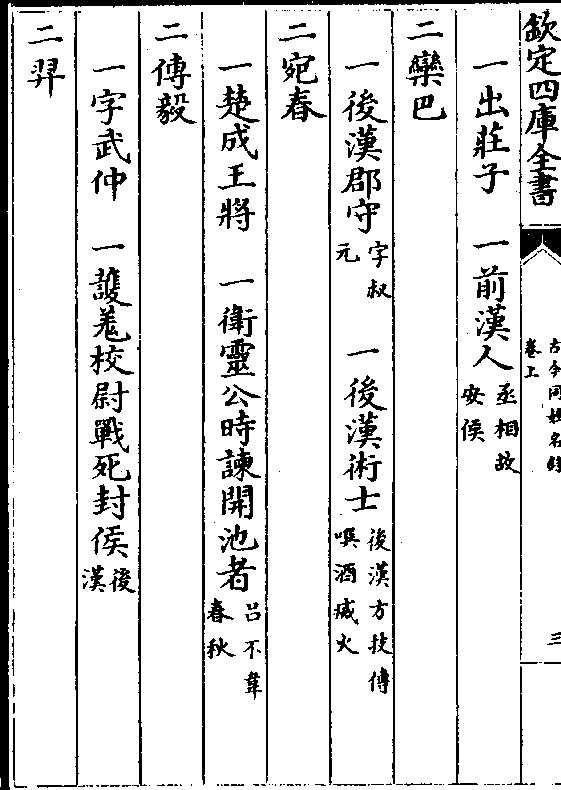 欽定四庫全書
古今同姓名錄
卷上
三
一出莊子　一前漢人丞相故安侯
二欒巴
一後漢郡守字叔元　一後漢術士後漢方技傳噀酒滅火
二宛春
一楚成王將　一衛靈公時諫開池者呂不韋春秋
二傅毅
一字武仲　一護羗校尉戰死封侯後漢
二羿